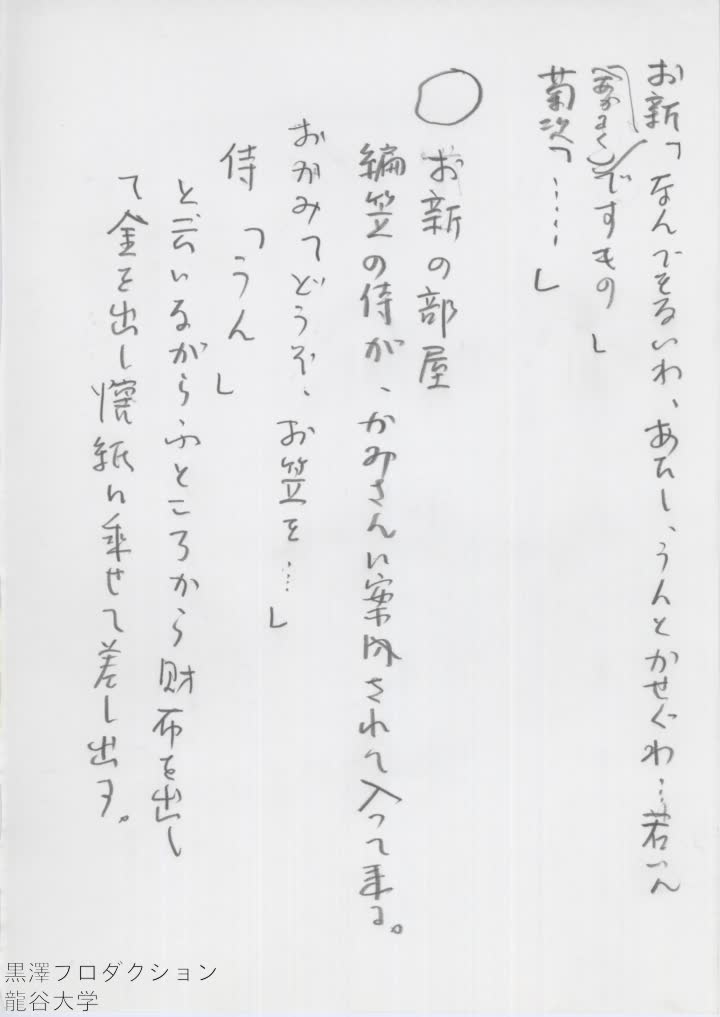 お新「なんでもないわ、あたし、うんとかせぐわ…若いん
(あかるく)ですもの」
菊次「……」
○ お新の部屋
編笠の侍が、かみさんに案内されて入って来る。
おかみ「どうぞ、お笠を…」
侍「うん」
と云いながらふところから財布を出し
て金を出し懐紙に乗せて差し出す。
黒澤プロダクション
龍谷大学